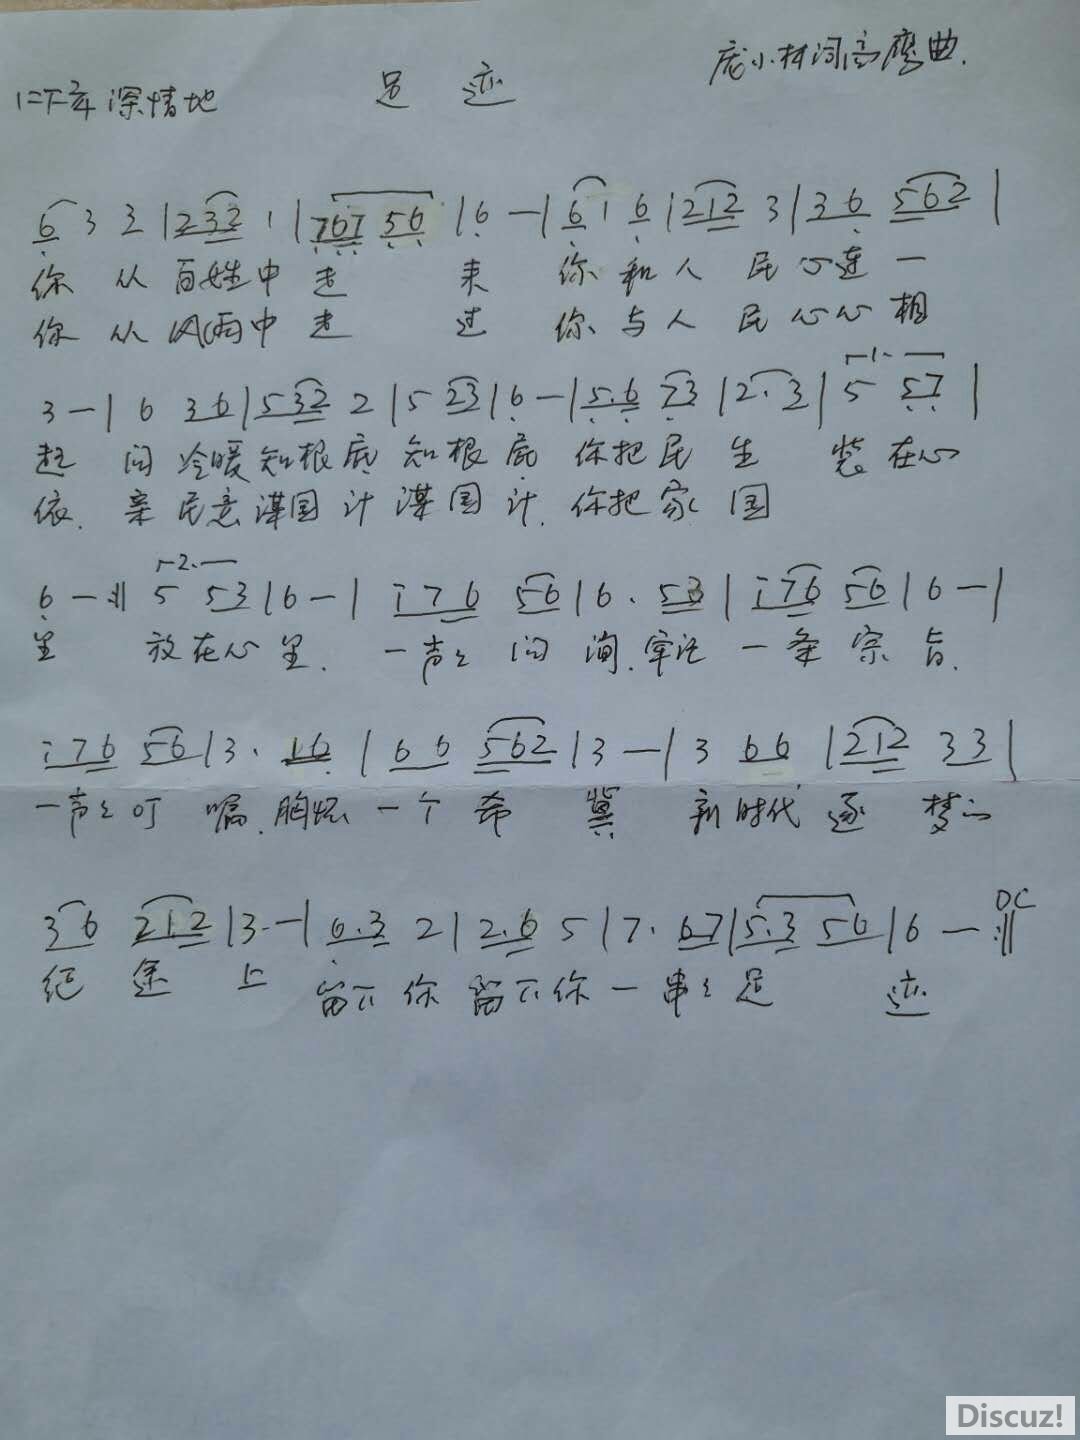 足迹
庞小林词 高鹰曲.
1=F 2/4 深情地
6 3 3 | 2 3 2 1 | 7 6 7 5 6 | 6 — | 6 1 6 | 2 1 2 3 | 3 6 5 6 2 |
你 从 百姓中 走 来 你 和 人 民 心 连 一
你 从 风雨中 走 过 你 与 人 民 心 心 相
3 — | 6 3 6 | 5 3 2 2 | 5 2 3 | 6 — | 5. 6 7 3 | 2. 3 | 5 5 7 |
起 问 冷暖 知根底 知根底 你把民 生 装 在心
依. 亲 民意 谋国计 谋国计. 你把家 国
6 — :|| 5 5 3 | 6 — | i 7 6 5 6 | 6. 5 3 | i 7 6 5 6 | 6 — |
里 放在心 里. 一声声 问 询. 牢记 一 条 宗 旨.
i 7 6 5 6 | 3. 1 6 | 6 6 5 6 2 | 3 — | 3 6 6 | 2 1 2 3 3 |
一声声叮 嘱. 胸怀 一 个 希 冀 新 时代 逐 梦的
3 6 2 1. 2 | 3. — | 6. 3 2 | 2. 6 5 | 7. 6 7 | 5. 3 5 6 | 6 — :||
DC
征 途 上 留下 你 留下 你 一 串串 足 迹
Discuz!